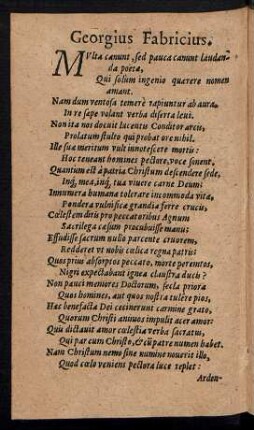 Georgius Fabricius.
Multa canunt, sed pauca canunt laudan-
da poëtæ,
Qui solùm ingenio quærere nomen
amant.
Nam dum ventosa temerè rapiuntur ab aura,
In re sæpe volant verba diserta leui.
Non ita nos docuit lucentis Conditor arcis,
Prolatum stulto qui probat ore nihil.
Ille sua meritum vult innotescere mortis:
Hoc teneant homines pectore, voce sonent,
Quantum est à patria Christum descendere sede,
Inq; mea, inq; tua viuere carne Deum:
Innumera humanæ tolerare incommoda vitæ,
Pondera vulnificæ grandia ferre crucis,
Cœlestem ditis pro peccatoribus Agnum
Sacrilega cæsum procubuisse manu:
Effudisse sacrum nullo parcente cruorem,
Redderet vt nobis cælica regna patris:
Quos prius absorptos peccato, morte peremtos,
Nigri expectabant ignea claustra ducis?
Non pauci memores Doctorum, secla priora
Quos homines, aut quos nostra tulêre pios,
Hæc benefacta Dei cecinerunt carmine grato,
Quorum Christi animos impulit acer amor:
Quîu dictauit amor cælestia verba sacratus,
Qui par cum Christo, & cũ patre numen habet.
Nam Christum nemo sine numine nouerit illo,
Quod cœlo veniens pectora luce replet:
Arden-